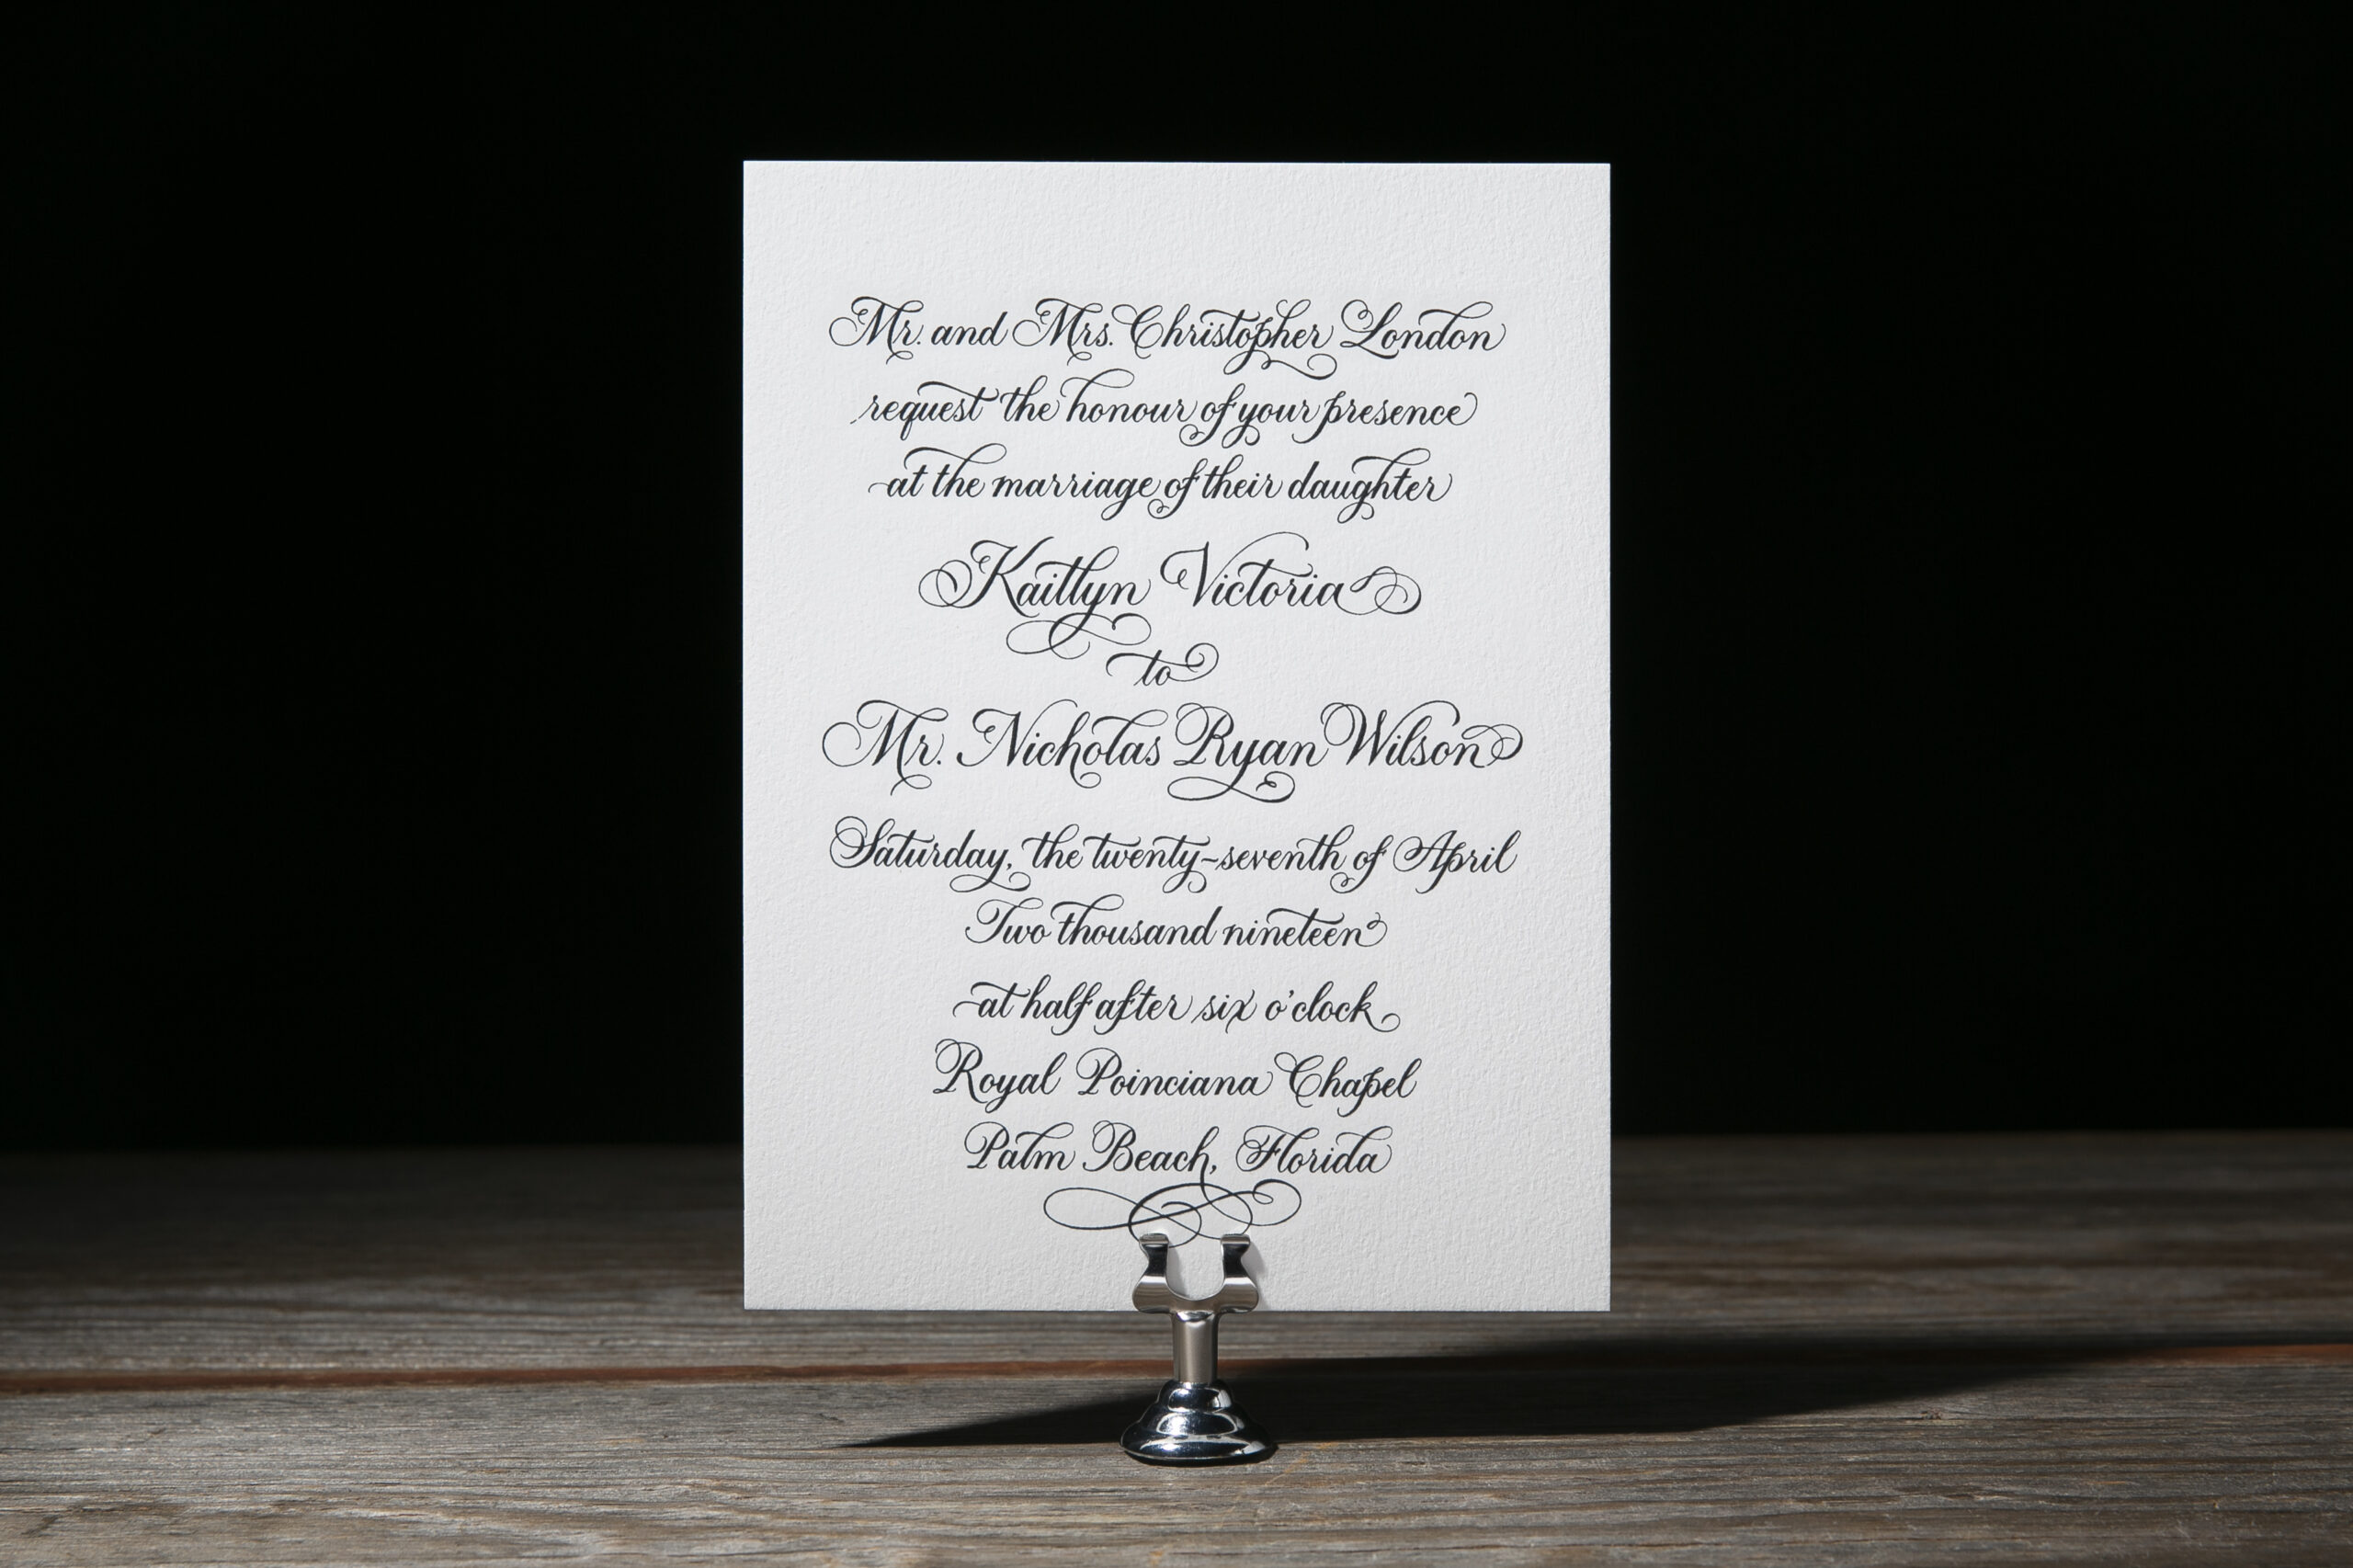 Mr. and Mrs. Christopher London
request the honour of your presence
at the marriage of their daughter
Kaitlyn Victoria
to
Mr. Nicholas Ryan Wilson
Saturday, the twenty-seventh of April
Two thousand nineteen
at half after six o'clock
Royal Poinciana Chapel
Palm Beach, Florida